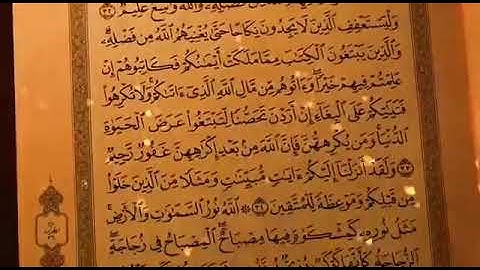 فَضْلِهِۦ وَٱللَّهُ وَٰسِعٌ عَلِيمٌ ٣٢
وَلْيَسْتَعْفِفِ ٱلَّذِينَ لَا يَجِدُونَ نِكَاحًا حَتَّىٰ يُغْنِيَهُمُ ٱللَّهُ مِن فَضْلِهِۦ
وَٱلَّذِينَ يَبْتَغُونَ ٱلْكِتَٰبَ مِمَّا مَلَكَتْ أَيْمَٰنُكُمْ فَكَاتِبُوهُمْ إِنْ
عَلِمْتُمْ فِيهِمْ خَيْرًا ۖ وَءَاتُوهُم مِّن مَّالِ ٱللَّهِ ٱلَّذِىٓ ءَاتَىٰكُمْ ۚ وَلَا تُكْرِهُوا۟
فَتَيَٰتِكُمْ عَلَى ٱلْبِغَآءِ إِنْ أَرَدْنَ تَحَصُّنًا لِّتَبْتَغُوا۟ عَرَضَ ٱلْحَيَوٰةِ
ٱلدُّنْيَا ۚ وَمَن يُكْرِههُّنَّ فَإِنَّ ٱللَّهَ مِنۢ بَعْدِ إِكْرَٰهِهِنَّ غَفُورٌ رَّحِيمٌ
٣٣ وَلَقَدْ أَنزَلْنَآ إِلَيْكُمْ ءَايَٰتٍ مُّبَيِّنَٰتٍ وَمَثَلًا مِّنَ ٱلَّذِينَ خَلَوْا۟
مِن قَبْلِكُمْ وَمَوْعِظَةً لِّلْمُتَّقِينَ ٣٤ ۞ ٱللَّهُ نُورُ ٱلسَّمَٰوَٰتِ وَٱلْأَرْضِ ۚ
مَثَلُ نُورِهِۦ كَمِشْكَوٰةٍ فِيهَا مِصْبَاحٌ ۖ ٱلْمِصْبَاحُ فِى زُجَاجَةٍ ۖ
ٱلزُّجَاجَةُ كَأَنَّهَا كَوْكَبٌ